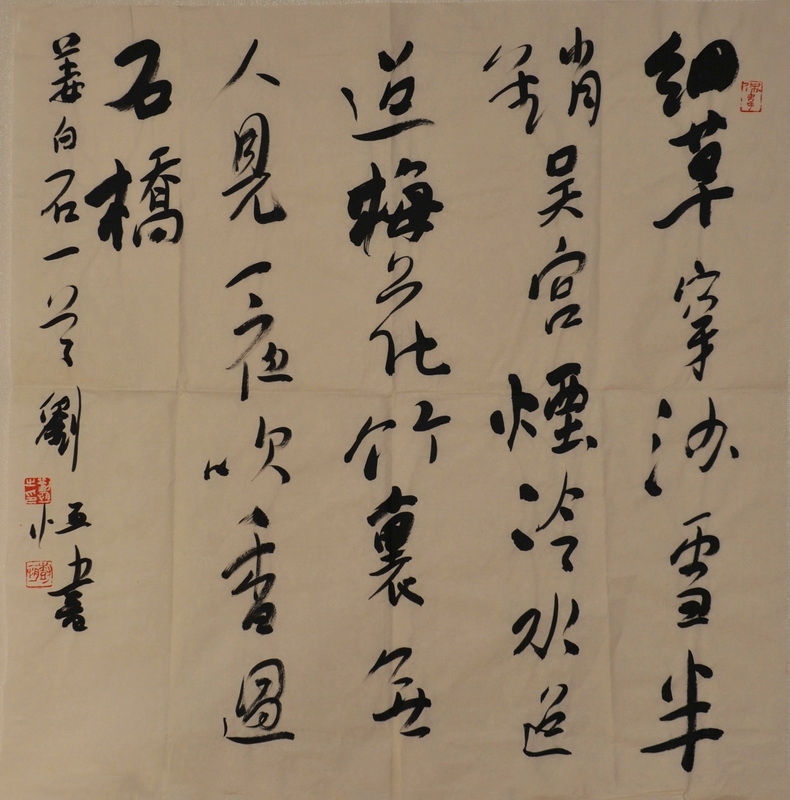 細草穿沙雪半
銷吳宮煙冷水迢
迢梅花竹裏無
人見一夜吹香過
石橋
姜白石一首劉恒書